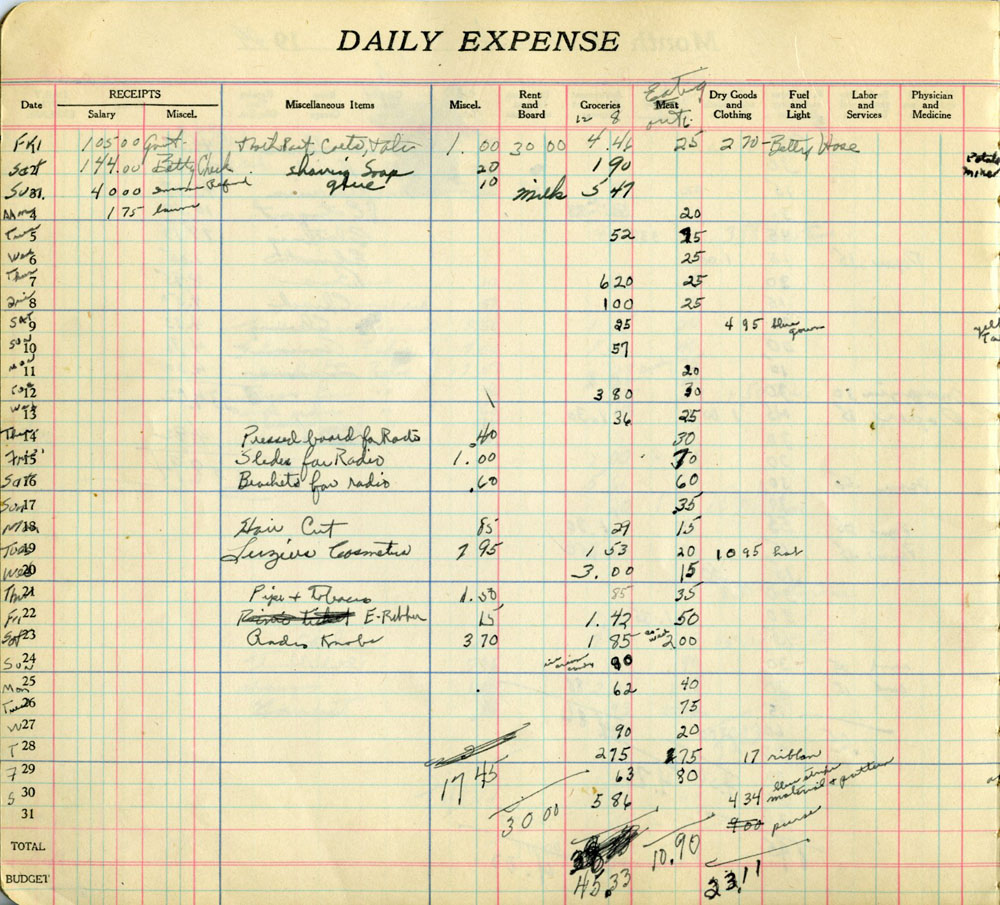 DAILY EXPENSE
Eating
RECEIPTS Rent and Board Dry Goods and Clothing Fuel and Light Labor and Services Physician and Medicine
Date Salary Miscel. Miscellaneous Items Miscel. Groceries Meat
out
FRI 1 105 00 Govt. 1. 00 30 00 4.46 25 2 70 - Betty Hose
Sat 2 144.00 Betty Check shaving Soap 20 1 90
Sun 3 40 00 Refund glue 10 milk 5 47
Mon 4 1 75 20
Tues 5 52 25
Wed 6 25
Thur 7 6 20 25
Fri 8 1 00 25
Sat 9 25 4 95 blue gown
Sun 10 57
Mon 11 20
Tue 12 3 80 30
Wed 13 36 25
Thur 14 Pressed board for Radio .40 30
Fri 15 Slides for Radio 1.00 70
Sat 16 Brackets for radio .60 60
Sun 17 35
Mon 18 Hair Cut 85 29 15
Tue 19 Luziers Cosmetics 7 95 1 53 20 10 95 hat
Wed 20 3.00 15
Thu 21 Pipe + Tobacco 1.50 85 35
Fri 22 E-Ribbon 15 1.42 50
Sat 23 Radio Knobs 3 70 1 85 2 00
Sun 24 ice cream 90
Mon 25 62 40
Tues 26 75
W 27 90 20
T 28 2 75 75 17 ribbon
F 29 63 80
S 30 5 86 4 34 blue stripe material + pattern
31 9 00 purse
17 45
30 00
TOTAL 10.90
BUDGET 45.33 23.11